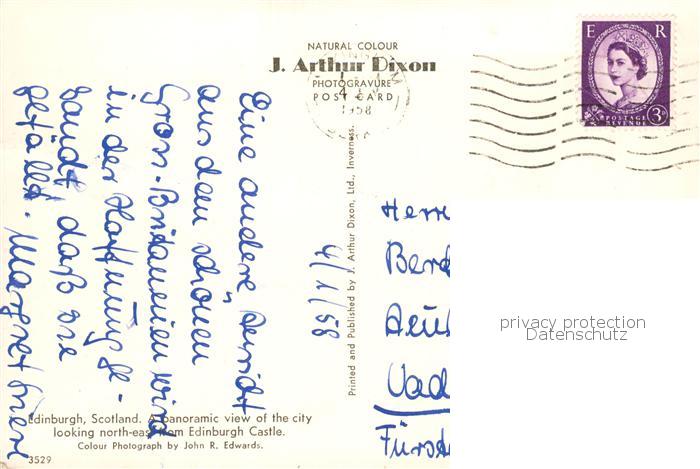 NATURAL COLOUR
J. Arthur Dixon
PHOTOGRAVURE
POST CARD
1958
E R
POSTAGE
REVENUE
3D
Eine andere Ansicht
aus dem schönen
Gross-Britannien wird
in der Hoffnung ge-
sandt, daß sie
gefällt. Margret
4/1/58
Printed and Published by J. Arthur Dixon, Ltd., Inverness.
Herrn
privacy protection
Datenschutz
Edinburgh, Scotland. A panoramic view of the city
looking north-east from Edinburgh Castle.
Colour Photograph by John R. Edwards.
3529